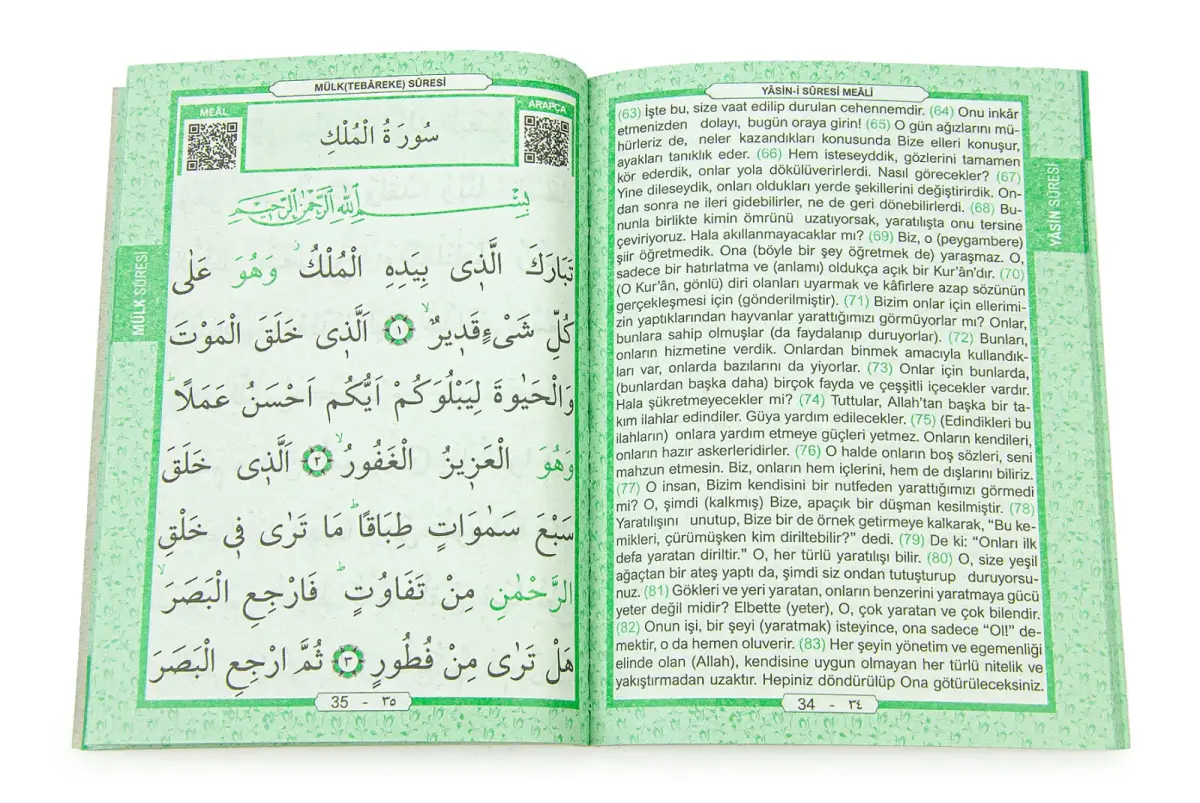 YÂSİN-İ SÛRESİ MEÂLİ
(63) İşte bu, size vaat edilip durulan cehennemdir. (64) Onu inkâr
etmenizden dolayı, bugün oraya girin! (65) O gün ağızlarını mü-
hürleriz de, neler kazandıkları konusunda Bize elleri konuşur,
ayakları tanıklık eder. (66) Hem isteseyddik, gözlerini tamamen
kör ederdik, onlar yola dökülüverirlerdi. Nasıl görecekler? (67)
Yine dileseydik, onları oldukları yerde şekillerini değiştirirdik. On-
dan sonra ne ileri gidebilirler, ne de geri dönebilirlerdi. (68) Bu-
nunla birlikte kimin ömrünü uzatıyorsak, yaratılışta onu tersine
çeviriyoruz. Hala akıllanmayacaklar mı? (69) Biz, o (peygambere)
şiir öğretmedik. Ona (böyle bir şey öğretmek de) yaraşmaz. O,
sadece bir hatırlatma ve (anlamı) oldukça açık bir Kur'ân'dır. (70)
(O Kur'ân, gönlü) diri olanları uyarmak ve kâfirlere azap sözünün
gerçekleşmesi için (gönderilmiştir). (71) Bizim onlar için ellerimi-
zin yaptıklarından hayvanlar yarattığımızı görmüyorlar mı? Onlar,
bunlara sahip olmuşlar (da faydalanıp duruyorlar). (72) Bunları,
onların hizmetine verdik. Onlardan binmek amacıyla kullandık-
ları var, onlarda bazılarını da yiyorlar. (73) Onlar için bunlarda,
(bunlardan başka daha) birçok fayda ve çeşşitli içecekler vardır.
Hala şükretmeyecekler mi? (74) Tuttular, Allah'tan başka bir ta-
kım ilahlar edindiler. Güya yardım edilecekler. (75) (Edindikleri bu
ilahların) onlara yardım etmeye güçleri yetmez. Onların kendileri,
onların hazır askerleridirler. (76) O halde onların boş sözleri, seni
mahzun etmesin. Biz, onların hem içlerini, hem de dışlarını biliriz.
(77) O insan, Bizim kendisini bir nutfeden yarattığımızı görmedi
mi? O, şimdi (kalkmış) Bize, apaçık bir düşman kesilmiştir. (78)
Yaratılışını unutup, Bize bir de örnek getirmeye kalkarak, “Bu ke-
mikleri, çürümüşken kim diriltebilir?” dedi. (79) De ki: “Onları ilk
defa yaratan diriltir.” O, her türlü yaratılışı bilir. (80) O, size yeşil
ağaçtan bir ateş yaptı da, şimdi siz ondan tutuşturup duruyorsu-
nuz. (81) Gökleri ve yeri yaratan, onların benzerini yaratmaya gücü
yeter değil midir? Elbette (yeter), O, çok yaratan ve çok bilendir.
(82) Onun işi, bir şeyi (yaratmak) isteyince, ona sadece “Ol!” de-
mektir, o da hemen oluverir. (83) Her şeyin yönetim ve egemenliği
elinde olan (Allah), kendisine uygun olmayan her türlü nitelik ve
yakıştırmadan uzaktır. Hepiniz döndürülüp Ona götürüleceksiniz.
34 - ٣٤
YÂSİN SÛRESİ
MÜLK(TEBÂREKE) SÛRESİ
MEÂL
ARAPÇA
سُورَةُ الْمُلْكِ
بِسْمِ اللّٰهِ الرَّحْمٰنِ الرَّحِيمِ
تَبَارَكَ الَّذٖى بِيَدِهِ الْمُلْكُۘ وَهُوَ عَلٰى
كُلِّ شَىْءٍ قَدٖيرٌۙ ﴿١﴾ اَلَّذٖى خَلَقَ الْمَوْتَ
وَالْحَيٰوةَ لِيَبْلُوَكُمْ اَيُّكُمْ اَحْسَنُ عَمَلًاؕ
وَهُوَ الْعَزٖيزُ الْغَفُورُۙ ﴿٢﴾ اَلَّذٖى خَلَقَ
سَبْعَ سَمٰوَاتٍ طِبَاقًاؕ مَا تَرٰى فٖى خَلْقِ
الرَّحْمٰنِ مِنْ تَفَاوُتٍؕ فَارْجِعِ الْبَصَرَۙ
هَلْ تَرٰى مِنْ فُطُورٍ ﴿٣﴾ ثُمَّ ارْجِعِ الْبَصَرَ
35 - ٣٥
MÜLK SÛRESİ